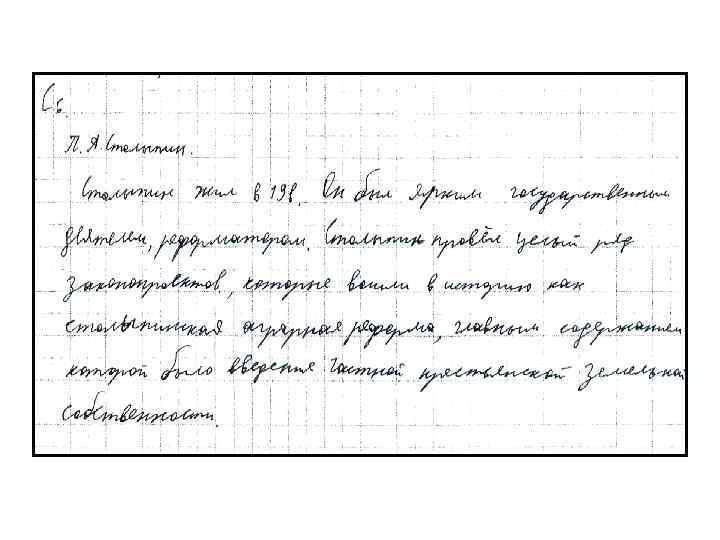 С6.
П. А. Столыпин.
Столыпин жил в 19в. Он был ярким государственным
деятелем, реформатором. Столыпин провёл целый ряд
законопроектов, которые вошли в историю как
столыпинская аграрная реформа, главным содержанием
которой было введение частной крестьянской земельной
собственности.